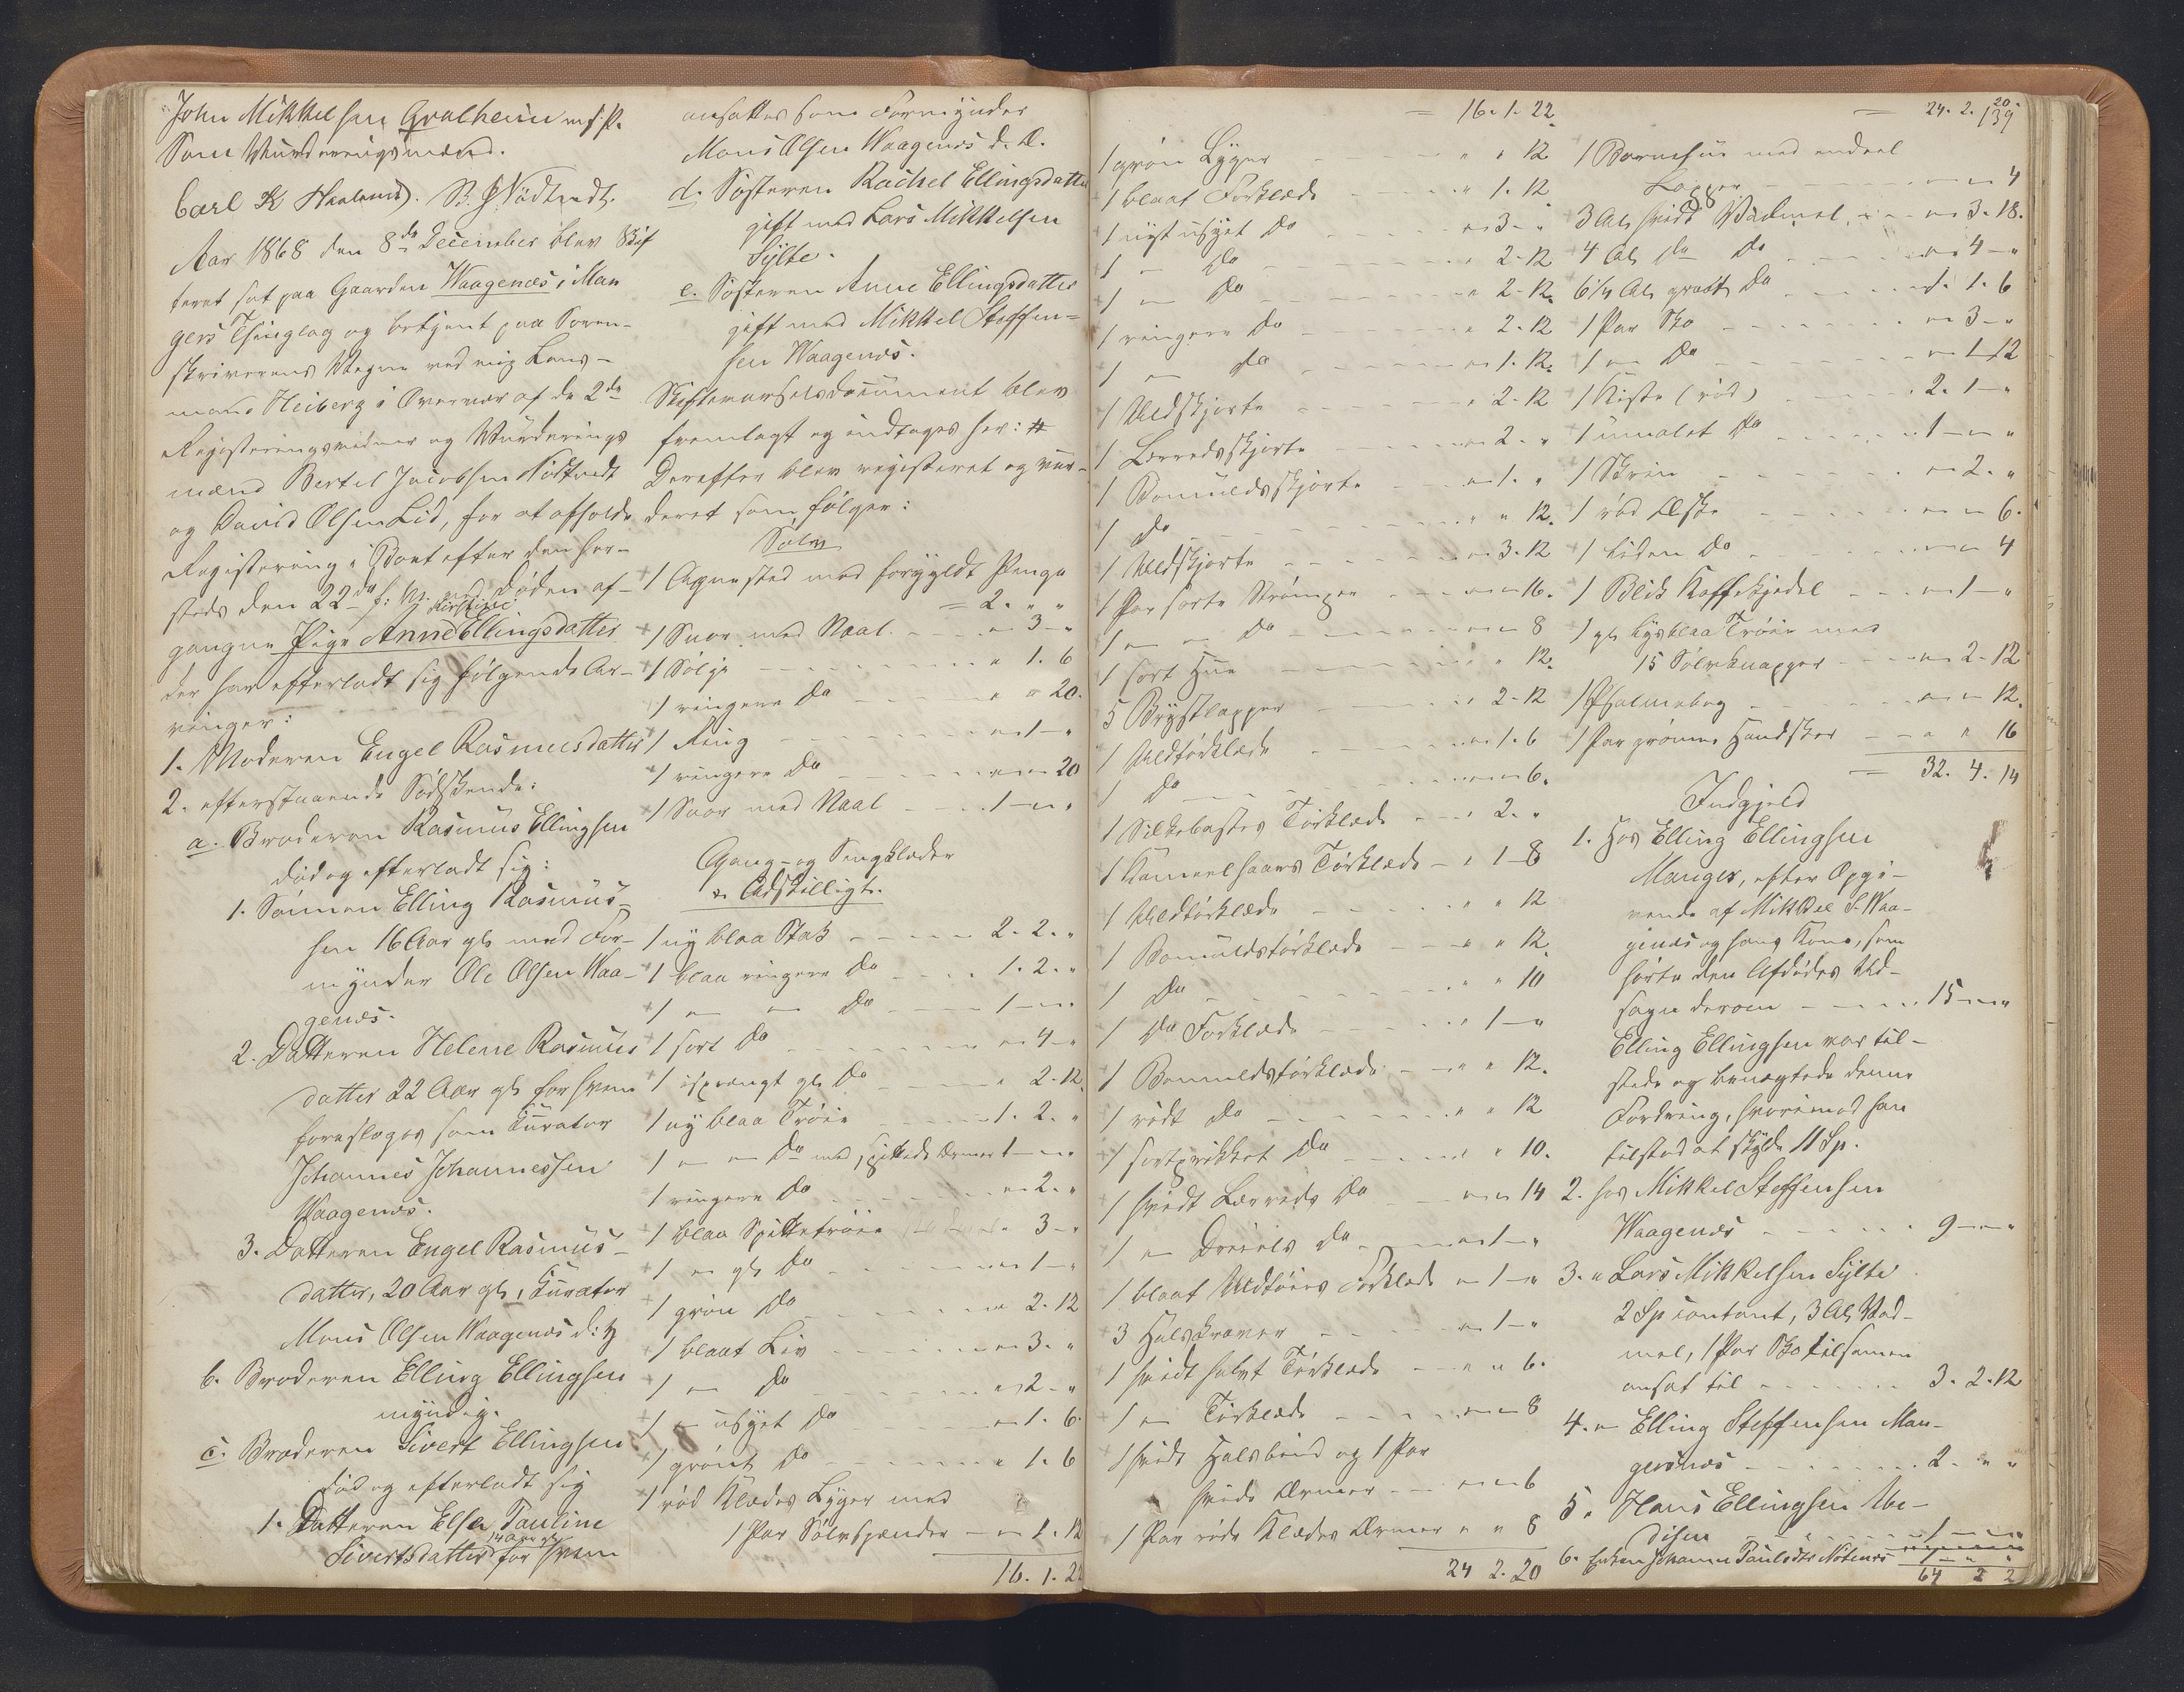 John Mikkelsen Gralheim m. f. P.
Som Vurderingsmænd.
Carl K Haaland. B. J Nødtvedt.
Aar 1868 den 8de December blev Skif
teret sat paa Gaarden Waagenæs i Man
gers Thinglag og betjent paa Soren-
skriverens Vegne ved mig Lens-
mand Heiberg i Overvær af de 2de
Registreringsvidner og Vurderings
mænd Bertel Jacobsen Nödtvedt
og David Olsen Lid, for at afholde
Registrering i Boet efter den her-
steds den 22de f. M. ved Døden af-
gangne Pige Anne Ellingsdatter
der har efterladt sig følgende Ar-
vinger:
1. Moderen Engel Rasmusdatter
2. efterstaaende Sødskende:
a. Broderen Rasmus Ellingsen
død og efterladt sig:
1. Sønnen Elling Rasmus-
sen 16 Aar gl. med For-
mynder Ole Olsen Waa-
genæs.
2. Datteren Helene Rasmus
datter 22 Aar gl. for hvem
foresloges som Kurator
Johannes Johannessen
Waagenæs.
3. Datteren Engel Rasmus-
datter, 20 Aar gl., Kurator
Mons Olsen Waagenæs
b. Broderen Elling Ellingsen
myndig.
c. Broderen Sivert Ellingsen
død og efterladt sig
1. Datteren Elsa Pauline
14 Aar gl.
Sivertsdatter for hvem
ansattes som Formynder
Mons Olsen Waagenæs d. Æ.
d. Søsteren Rachel Ellingsdatter
gift med Lars Mikkelsen
Sylte.
e. Søsteren Anne Ellingsdatter
gift med Mikkel Steffen-
sen Waagenæs.
Skiftevarselsdocument blev
fremlagt og indtages her: #
Derefter blev registreret og vur-
deret som følger:
Sølv
1 Agnusted med forgyldt Penge
= 2. " "
1 Snor med Naal - - " 3 - "
1 Sølje - - - " 1. 6
1 ringere Do - - - " " 20.
1 Ring - - - " 1 - "
1 ringere Do - - - " " 20
1 Snor med Naal - - 1 - " "
Gang- og Sengklæder
& Adskilligt.
1 ny blaa Stak - - - 2. 2. "
1 blaa ringere Do - - - 1. 2. "
1 " " Do - - - 1 - " "
1 sort Do - - - " 4 - "
1 isprængt gl. Do - - - " 2. 12.
1 ny blaa Trøie - - - 1. 2. "
1 " " Do med spittede Ærmer 1 - " "
1 ringere Do - - - " 2. "
1 blaa Spittetrøie 3 - "
1 " gl. Do - - - " 1 - "
1 grøn Do - - - " 2. 12
1 blaat Liv - - - " 3. "
1 " Do - - - " 2 - "
1 " usyet Do - - - " 1. 6.
1 grønt Do - - - " 1. 6
1 rød Klædes Lyger med
1 Par Sølvspænder - " 1. 12
16. 1. 22
= 16. 1. 22
1 grøn Lyger - - - " " 12
1 blaat Forklæde - - - " 1. 12
1 nyt usyet Do - - - " 3 - "
1 " Do - - - " 2. 12
1 " Do - - - " 2. 12.
1 ringere Do - - - " 2. 12
1 " Do - - - " 1. 12.
1 Uldskjorte - - - " 2. 12
1 Lærredsskjorte - - - " 2. "
1 Bomuldsskjorte - - - " 1. "
1 Do - - - " " 12.
1 Uldskjorte - - - " 3. 12
1 Par sorte Strømper - - - " " 16.
1 " " Do - - - " " 8
1 sort Hue - - - " " 12.
5 Brystlapper - - - " 2. 12
1 Uldtørklæde - - - " 1. 6
1 Do - - - " " 6.
1 Silkebastes Tørklæde - - " 2. "
1 Kameelhaars Tørklæde - " 1 - 8
1 Uldtørklæde - - - " " 12
1 Bomuldstørklæde - - - " " 12.
1 Do - - - " " 10
1 Do Forklæde - - - " 1 - "
1 Bomuldstørklæde - - - " " 12.
1 rødt Do - - - " " 12
1 sortprikket Do - - - " " 10.
1 hvidt Lærreds Do - - " " 14
1 " Dreiels Do - - " 1 - "
1 blaat Uldtøies Forklæde " 1 - "
3 Halskraver - - - " 1 - "
1 hvidt halvt Tørklæde - - " " 6.
1 " Tørklæde - - - " " 8
1 hvidt Halsbind og 1 Par
hvide Ærmer - - " " 6
1 Par røde Klædes Ærmer " " 8
24 2. 20
= 24. 2. 20.
139
1 Barnehue med endeel
Lapper - - - " " 4
3 Al. hvidt Vadmel - - " 3. 18.
4 Al. do Do - - - " 4 - "
6 1/4 Al. graat Do - - - 1. 1. 6
1 Par Sko - - - " 3 - "
1 " Do - - - " 1 - 12
1 Kiste (rød) - - - 2. 1 - "
1 umalet Do - - - 1 - " "
1 Skrin - - - " 2. "
1 rød Æske - - - " " 6.
1 liden Do - - - " " 4
1 Blik Kaffekjedel - - - " 1 - "
1 gl. lysblaa Trøie med
15 Sølvknapper - - " 2. 12
1 Psalmebog - - - " " 12.
1 Par grønne Handsker - - " " 16
= 32. 4. 14
Indgjeld
1. Hos Elling Ellingsen
Manger, efter Opgi-
vende af Mikkel S. Waa-
genæs og hans Kone, som
hørte den Afdødes Ud-
sagn derom - - - 15 - " "
Elling Ellingsen var til-
stede og benægtede denne
Fordring, hvorimod han
tilstod at skylde 11 Sp.
2. hos Mikkel Steffensen
Waagenæs - - - 9 - " "
3. " Lars Mikkelsen Sylte
2 Sp contant, 3 Al. Vad-
mel, 1 Par Sko tilsamen
ansat til - - - 3. 2. 12
4. " Elling Steffensen Man-
gersnæs - - - 2. " "
5. Hans Ellingsen Ube-
disen - - - 1 - " "
6. Enken Johanne Paulsdtr Notenæs 1 - " "
64 2 2